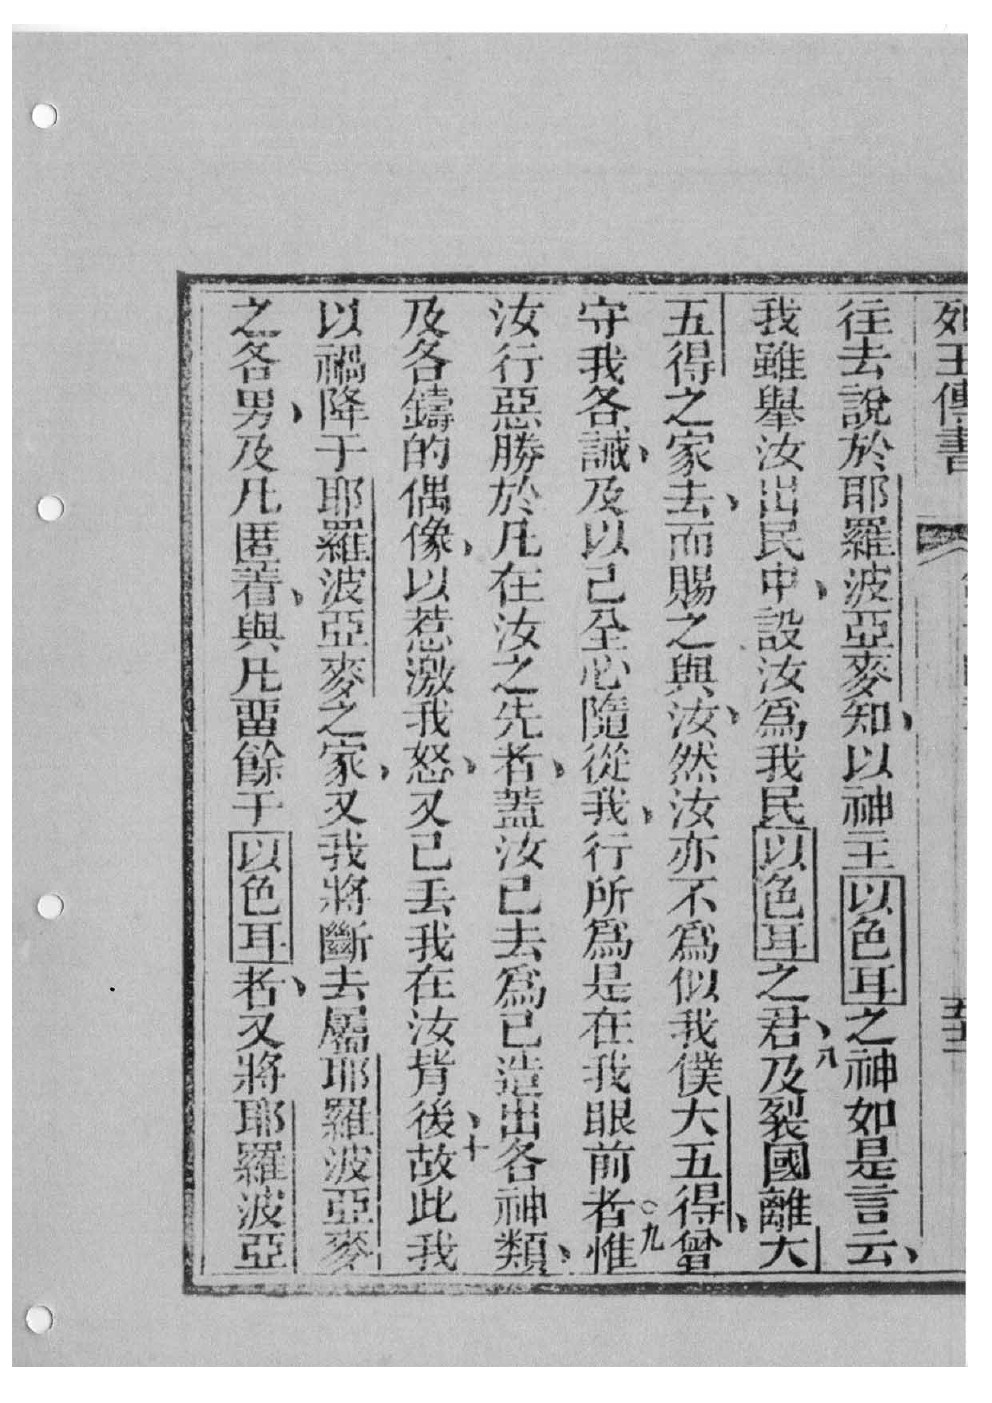 列王傳書
往去說於耶羅波亞麥知、以神主以色耳之神如是言云、
我雖舉汝出民中、設汝爲我民以色耳之君、八及裂國離大
五得之家去、而賜之與汝、然汝亦不爲似我僕大五得、曾
守我各誡、及以己全心隨從我、行所爲是在我眼前者。九惟
汝行惡勝於凡在汝之先者、蓋汝已去爲己造出各神類、
及各鑄的偶像、以惹激我怒、又已丟我在汝背後、十故此我
以禍降于耶羅波亞麥之家、又我將斷去屬耶羅波亞麥
之各男、及凡匿着、與凡畱餘于以色耳者、又將耶羅波亞